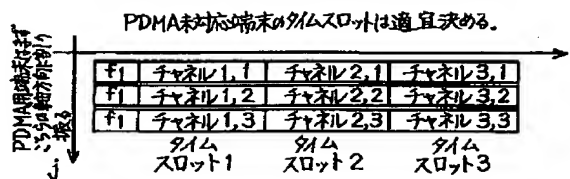 PDMA未対応端末のタイムスロットは適宜決める。
PDMA用端末はまず
こちらの軸方向に割り
振る
j
f1 チャネル1,1 チャネル2,1 チャネル3,1
f1 チャネル1,2 チャネル2,2 チャネル3,2
f1 チャネル1,3 チャネル2,3 チャネル3,3
タイム タイム タイム
スロット1 スロット2 スロット3